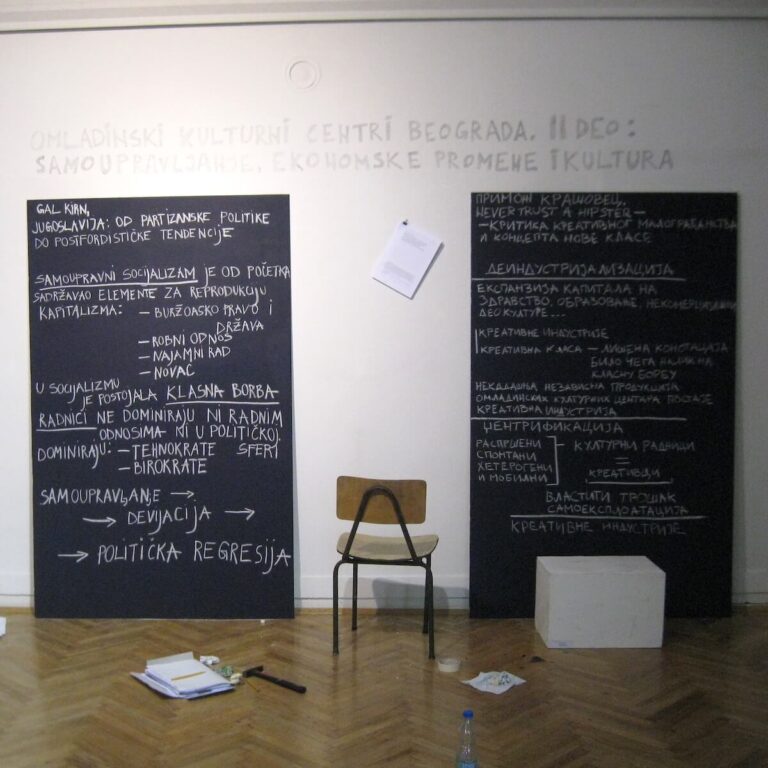 OMLADINSKI KULTURNI CENTRI BEOGRADA. II DEO:
SAMOUPRAVLJANJE, EKONOMSKE PROMENE I KULTURA
GAL KIRN,
JUGOSLAVIJA: OD PARTIZANSKE POLITIKE
DO POSTFORDISTIČKE TENDENCIJE
SAMOUPRAVNI SOCIJALIZAM JE OD POČETKA
SADRŽAVAO ELEMENTE ZA REPRODUKCIJU
KAPITALIZMA: – BURŽOASKO PRAVO I
DRŽAVA
– ROBNI ODNOS
– NAJAMNI RAD
– NOVAC
U SOCIJALIZMU
JE POSTOJALA KLASNA BORBA
RADNICI NE DOMINIRAJU NI RADNIM
ODNOSIMA NI U POLITIČKOJ
SFERI
DOMINIRAJU: – TEHNOKRATE
– BIROKRATE
SAMOUPRAVLJANJE →
→ DEVIJACIJA →
→ POLITIČKA REGRESIJA
ПРИМОЖ КРАШОВЕЦ,
NEVER TRUST A HIPSTER –
– КРИТИКА КРЕАТИВНОГ МАЛОГРАЂАНСТВА
И КОНЦЕПТА НОВЕ КЛАСЕ
ДЕИНДУСТРИЈАЛИЗАЦИЈА
ЕКСПАНЗИЈА КАПИТАЛА НА
ЗДРАВСТВО, ОБРАЗОВАЊЕ, НЕКОМЕРЦИЈАЛНИ
ДЕО КУЛТУРЕ...
КРЕАТИВНЕ ИНДУСТРИЈЕ
КРЕАТИВНА КЛАСА – ЛИШЕНА КОНОТАЦИЈА
БИЛО ЧЕГА НАЛИК НА
КЛАСНУ БОРБУ
НЕКАДАШЊА НЕЗАВИСНА ПРОДУКЦИЈА
ОМЛАДИНСКИХ КУЛТУРНИХ ЦЕНТАРА ПОСТАЈЕ
КРЕАТИВНА ИНДУСТРИЈА
ЏЕНТРИФИКАЦИЈА
РАСПРШЕНИ
СПОНТАНИ
ХЕТЕРОГЕНИ
И МОБИЛНИ
– КУЛТУРНИ РАДНИЦИ
=
КРЕАТИВЦИ
ВЛАСТИТИ ТРОШАК
САМОЕКСПЛОАТАЦИЈА
КРЕАТИВНЕ ИНДУСТРИЈЕ